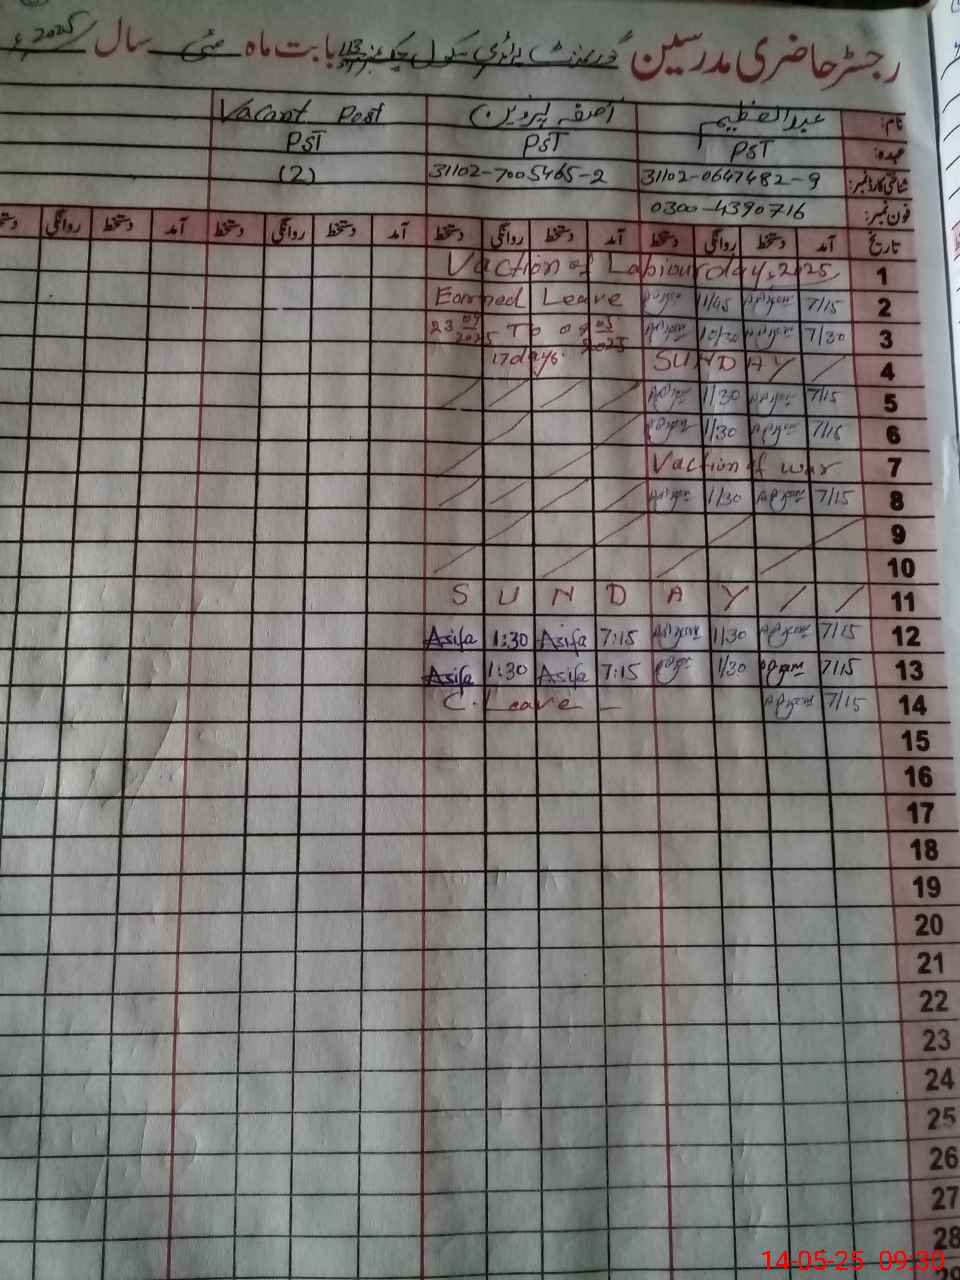 رجسٹر حاضری مدرسین گورنمنٹ پرائمری سکول چک نمبر 113 بابت ماہ مئی سال 2025ء
نام: عبدالعظیم آصفہ پروین Vacant Post
عہدہ: PST PST PST
شناختی کارڈ نمبر: 31102-0647482-9 31102-7005465-2 (2)
فون نمبر: 0300-4390716
تاریخ آمد دستخط روانگی دستخط آمد دستخط روانگی دستخط آمد دستخط روانگی دستخط آمد دستخط روانگی دستخط
1 Vaction of Labiour day, 2025
2 7/15 11/45 Earned Leave
3 7/30 10/30 23 04 2025 To 09 05 2025
4 SUNDAY / 17 days.
5 7/15 1/30
6 7/15 1/30
7 Vaction of war
8 7/15 1/30
9
10
11 S U N D A Y / /
12 7/15 1/30 7:15 Asifa 1:30 Asifa
13 7/15 1/30 7:15 Asifa 1:30 Asifa
14 7/15 C. Leave –
15
16
17
18
19
20
21
22
23
24
25
26
27
28
29
14-05-25 09:30